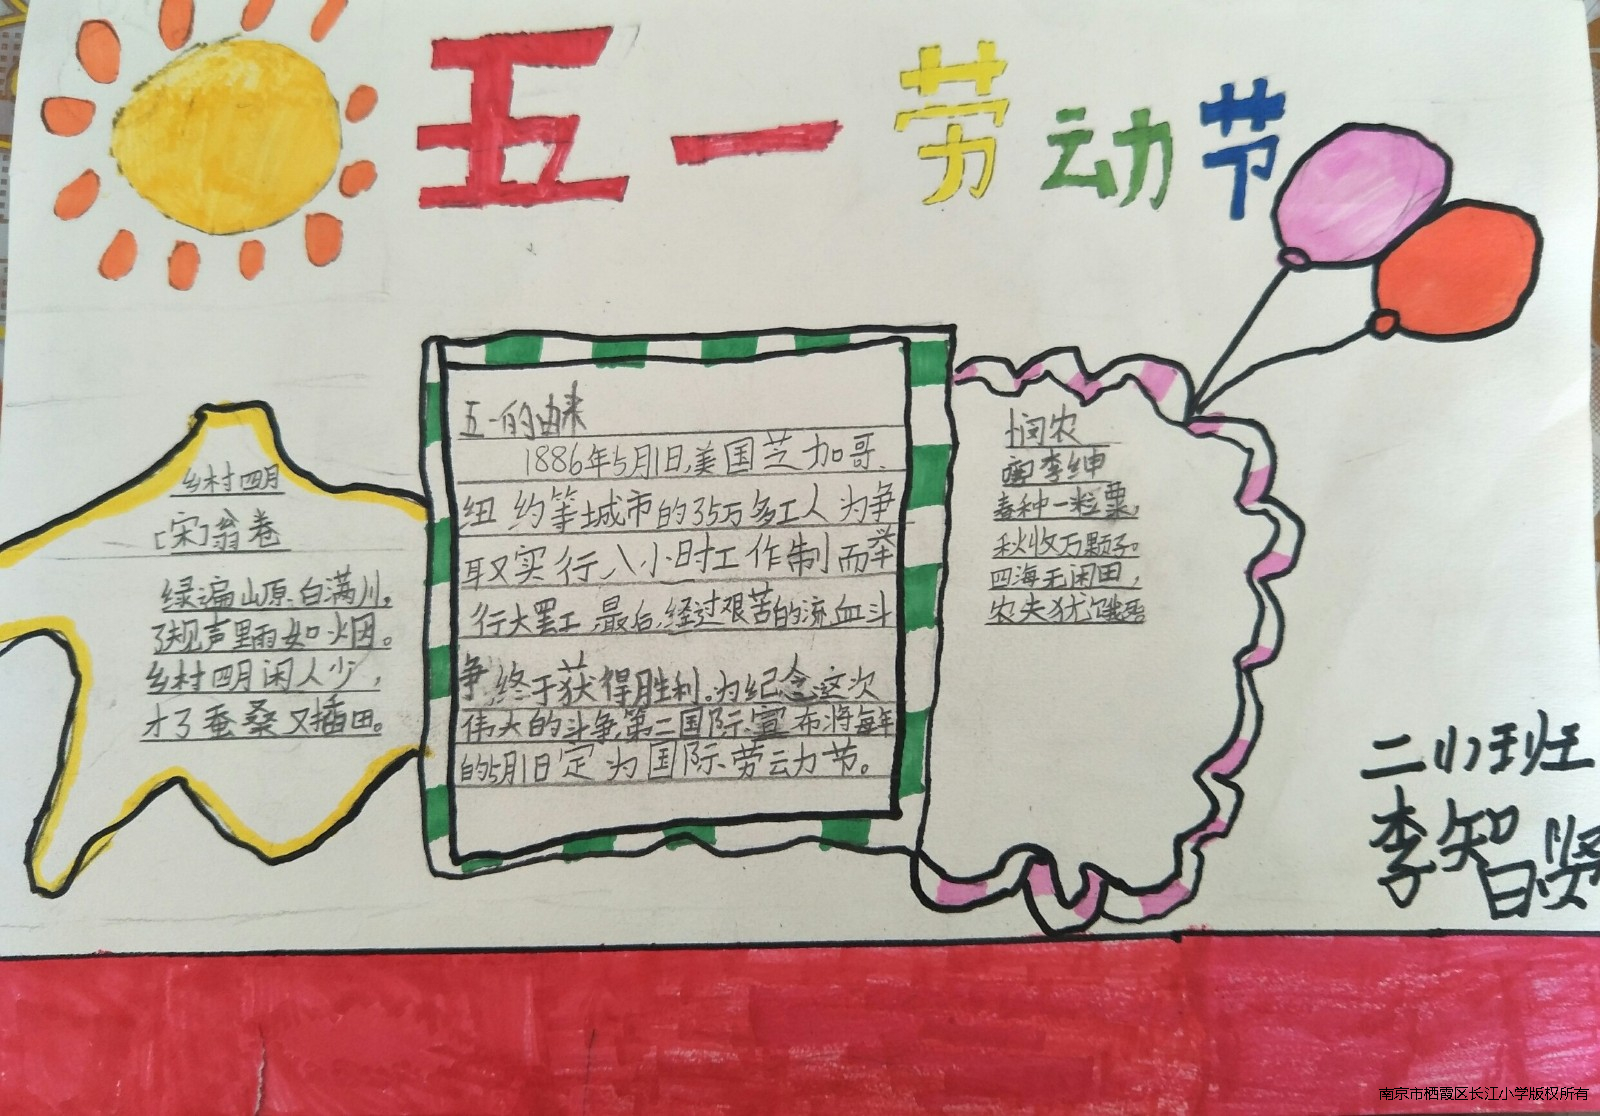 五一劳动节
乡村四月
[宋]翁卷
绿遍山原白满川,
子规声里雨如烟。
乡村四月闲人少,
才了蚕桑又插田。
五一的由来
1886年5月1日,美国芝加哥、
纽约等城市的35万多工人为争
取实行八小时工作制而举
行大罢工,最后,经过艰苦的流血斗
争,终于获得胜利。为纪念这次
伟大的斗争,第二国际宣布将每年
的5月1日定为国际劳动节。
悯农
李绅
春种一粒粟,
秋收万颗子。
四海无闲田,
农夫犹饿死
二小班
李智贤
南京市栖霞区长江小学版权所有